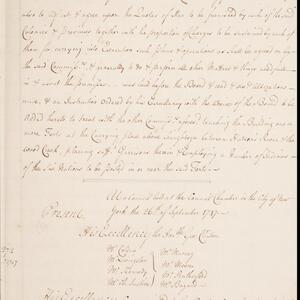 also to adjust & agree upon the Quotas of Men to be furnished by each of the said
Colonies & Provinces together with the proportion of Charges to be sustained by each of
them for carrying into Execution such plans & operations as shall be agreed on by
the said Commiss.rs & generally to do & perform all other Matters & things
in & about the premises was laid before the Board & read &
& an Instruction ordered by his Excellency with the advice of the Board to be
added thereto to treat with the other Commiss.rs aforesaid touching the Building one or
more Forts at the Carrying place above Saraghtoga between Hudson's River & the
Wood Creek placing suff.t Garrisons therein & Employing a Number of Indians
of the Six Nations to be posted in or near the said Forts
At a Council held at the Council Chamber in the City of New
York the 26th of September 1747
Present
His Excellency the Hon.ble Geo: Clinton
Mr. Colden
Mr. Livingston
Mr. Kennedy
Mr. Ch. Justice
Mr. Murray
Mr. Moore
Mr. Rutherfurd
Mr. Bayard
1747
His Excellency